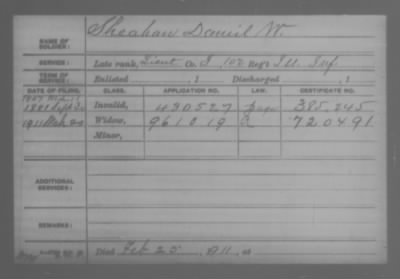 Sheahan Daniel W.
NAME OF SOLDIER:
SERVICE: Late rank, Lieut Co. I, 102 Reg't Ill. Inf.
TERM OF SERVICE: Enlisted , 1 Discharged , 1
DATE OF FILING. CLASS. APPLICATION NO. LAW. CERTIFICATE NO.
Invalid, 430527 385.245
1911 Mch Widow, 961019 720491
Minor,
ADDITIONAL SERVICES:
REMARKS:
Died Feb 25, 1911, at